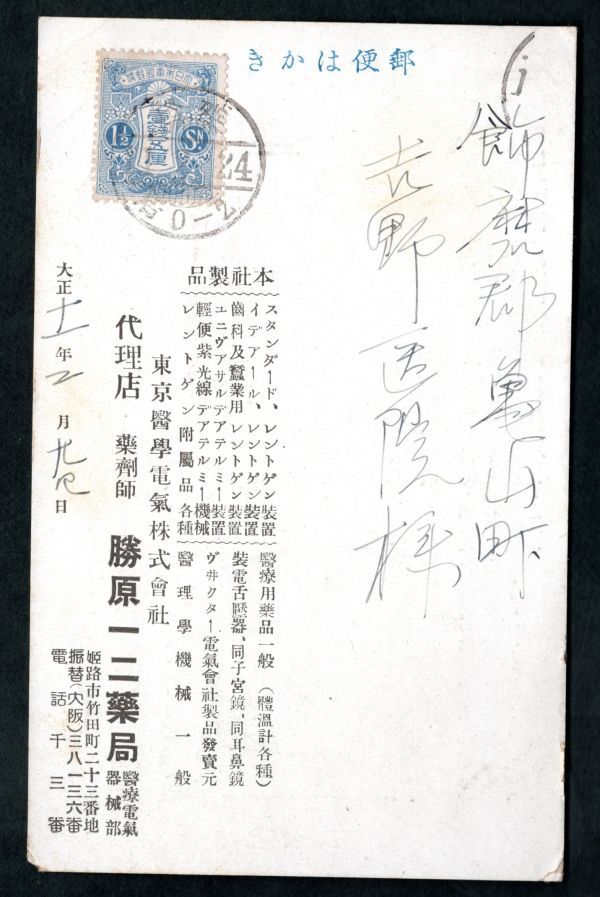 郵便はかき
飾磨郡亀山町
吉野医院様
大日本帝國郵便
壹錢五厘
1½ Sn.
24
0-2
本社製品
スタンダード、レントゲン裝置
イデアール、レントゲン裝置
齒科及蠶業用レントゲン裝置
ユニヴアサルデアテルミー裝置
輕便紫光線デアテルミー機械
レントゲン附屬品各種
醫療用藥品一般(體溫計各種)
裝電舌壓器、同子宮鏡、同耳鼻鏡
ヴ井クター電氣會社製品發賣元
醫理學機械一般
東京醫學電氣株式會社
代理店 藥劑師 勝原一二藥局 醫療電氣器械部
姬路市竹田町二十三番地
振替(大阪)三八一三六番
電話千三番
大正十一年二月 日